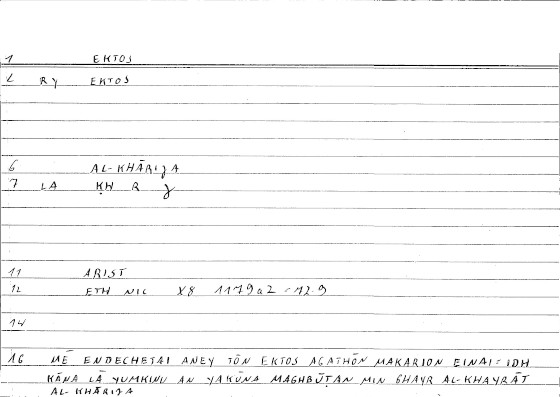 1 EKTOS
2 RY EKTOS
6 AL-KHĀRIJA
7 LA ḴH R J
11 ARIST
12 ETH NIC X8 1179a2 = 12.9
14
16 MĒ ENDECHETAI ANEY TŌN EKTOS AGATHŌN MAKARION EINAI = IDH
KĀNA LĀ YUMKINU AN YAKŪNA MAGHBŪṬAN MIN GHAYR AL-KHAYRĀT
AL-KHĀRIJA